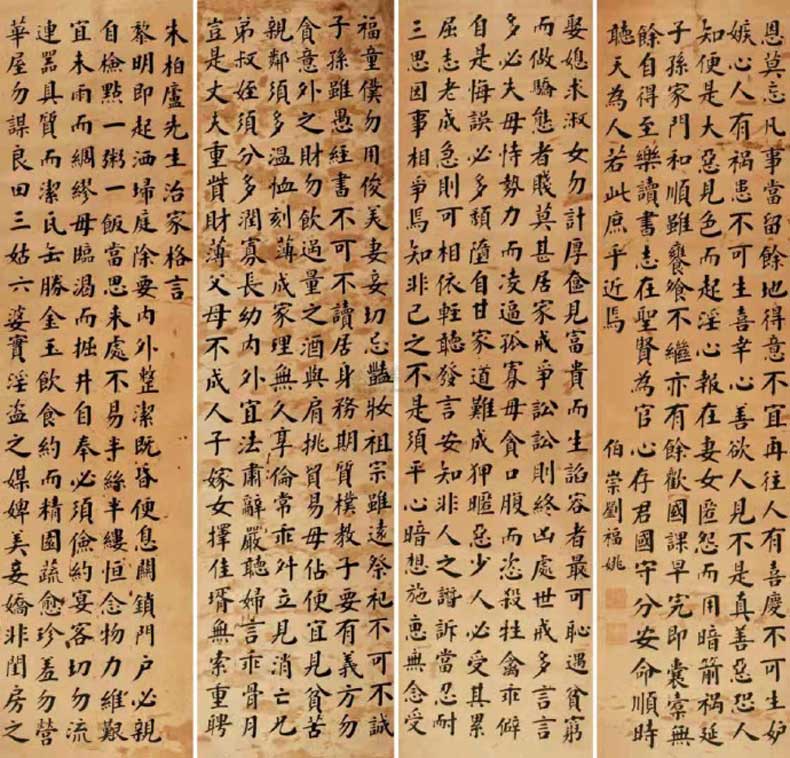 朱柏廬先生治家格言
黎明即起洒埽庭除要內外整潔既昏便息關鎖門戶必親
自檢點一粥一飯當思來處不易半絲半縷恒念物力維艱
宜未雨而綢繆毋臨渴而掘井自奉必須儉約宴客切勿流
連噐具質而潔瓦缶勝金玉飲食約而精園蔬愈珍羞勿營
華屋勿謀良田三姑六婆實淫盗之媒婢美妾嬌非閨房之
福童僕勿用俊美妻妾切忌豔妝祖宗雖遠祭祀不可不誠
子孫雖愚經書不可不讀居身務期質樸教子要有義方勿
貪意外之財勿飲過量之酒與肩挑貿易毋佔便宜見貧苦
親鄰須多溫恤刻薄成家理無久享倫常乖舛立見消亡兄
弟叔姪須分多潤寡長幼內外宜法肅辭嚴聽婦言乖骨肉
豈是丈夫重貲財薄父母不成人子嫁女擇佳壻無索重聘
娶媳求淑女勿計厚奩見富貴而生諂容者最可恥遇貧窮
而做驕態者賤莫甚居家戒爭訟訟則終凶處世戒多言言
多必失毋恃勢力而凌逼孤寡毋貪口腹而恣殺牲禽乖僻
自是悔誤必多頹隨自甘家道難成狎暱惡少人必受其累
屈志老成急則可相依輕聽發言安知非人之譖訴當忍耐
三思因事相爭焉知非己之不是須平心暗想施惠無念受
恩莫忘凡事當留餘地得意不宜再往人有喜慶不可生妒
嫉心人有禍患不可生喜幸心善欲人見不是真善惡恐人
知便是大惡見色而起淫心報在妻女匿怨而用暗箭禍延
子孫家門和順雖饔飧不繼亦有餘歡國課早完即囊橐無
餘自得至樂讀書志在聖賢為官心存君國守分安命順時
聽天為人若此庶乎近焉
伯崇劉福姚